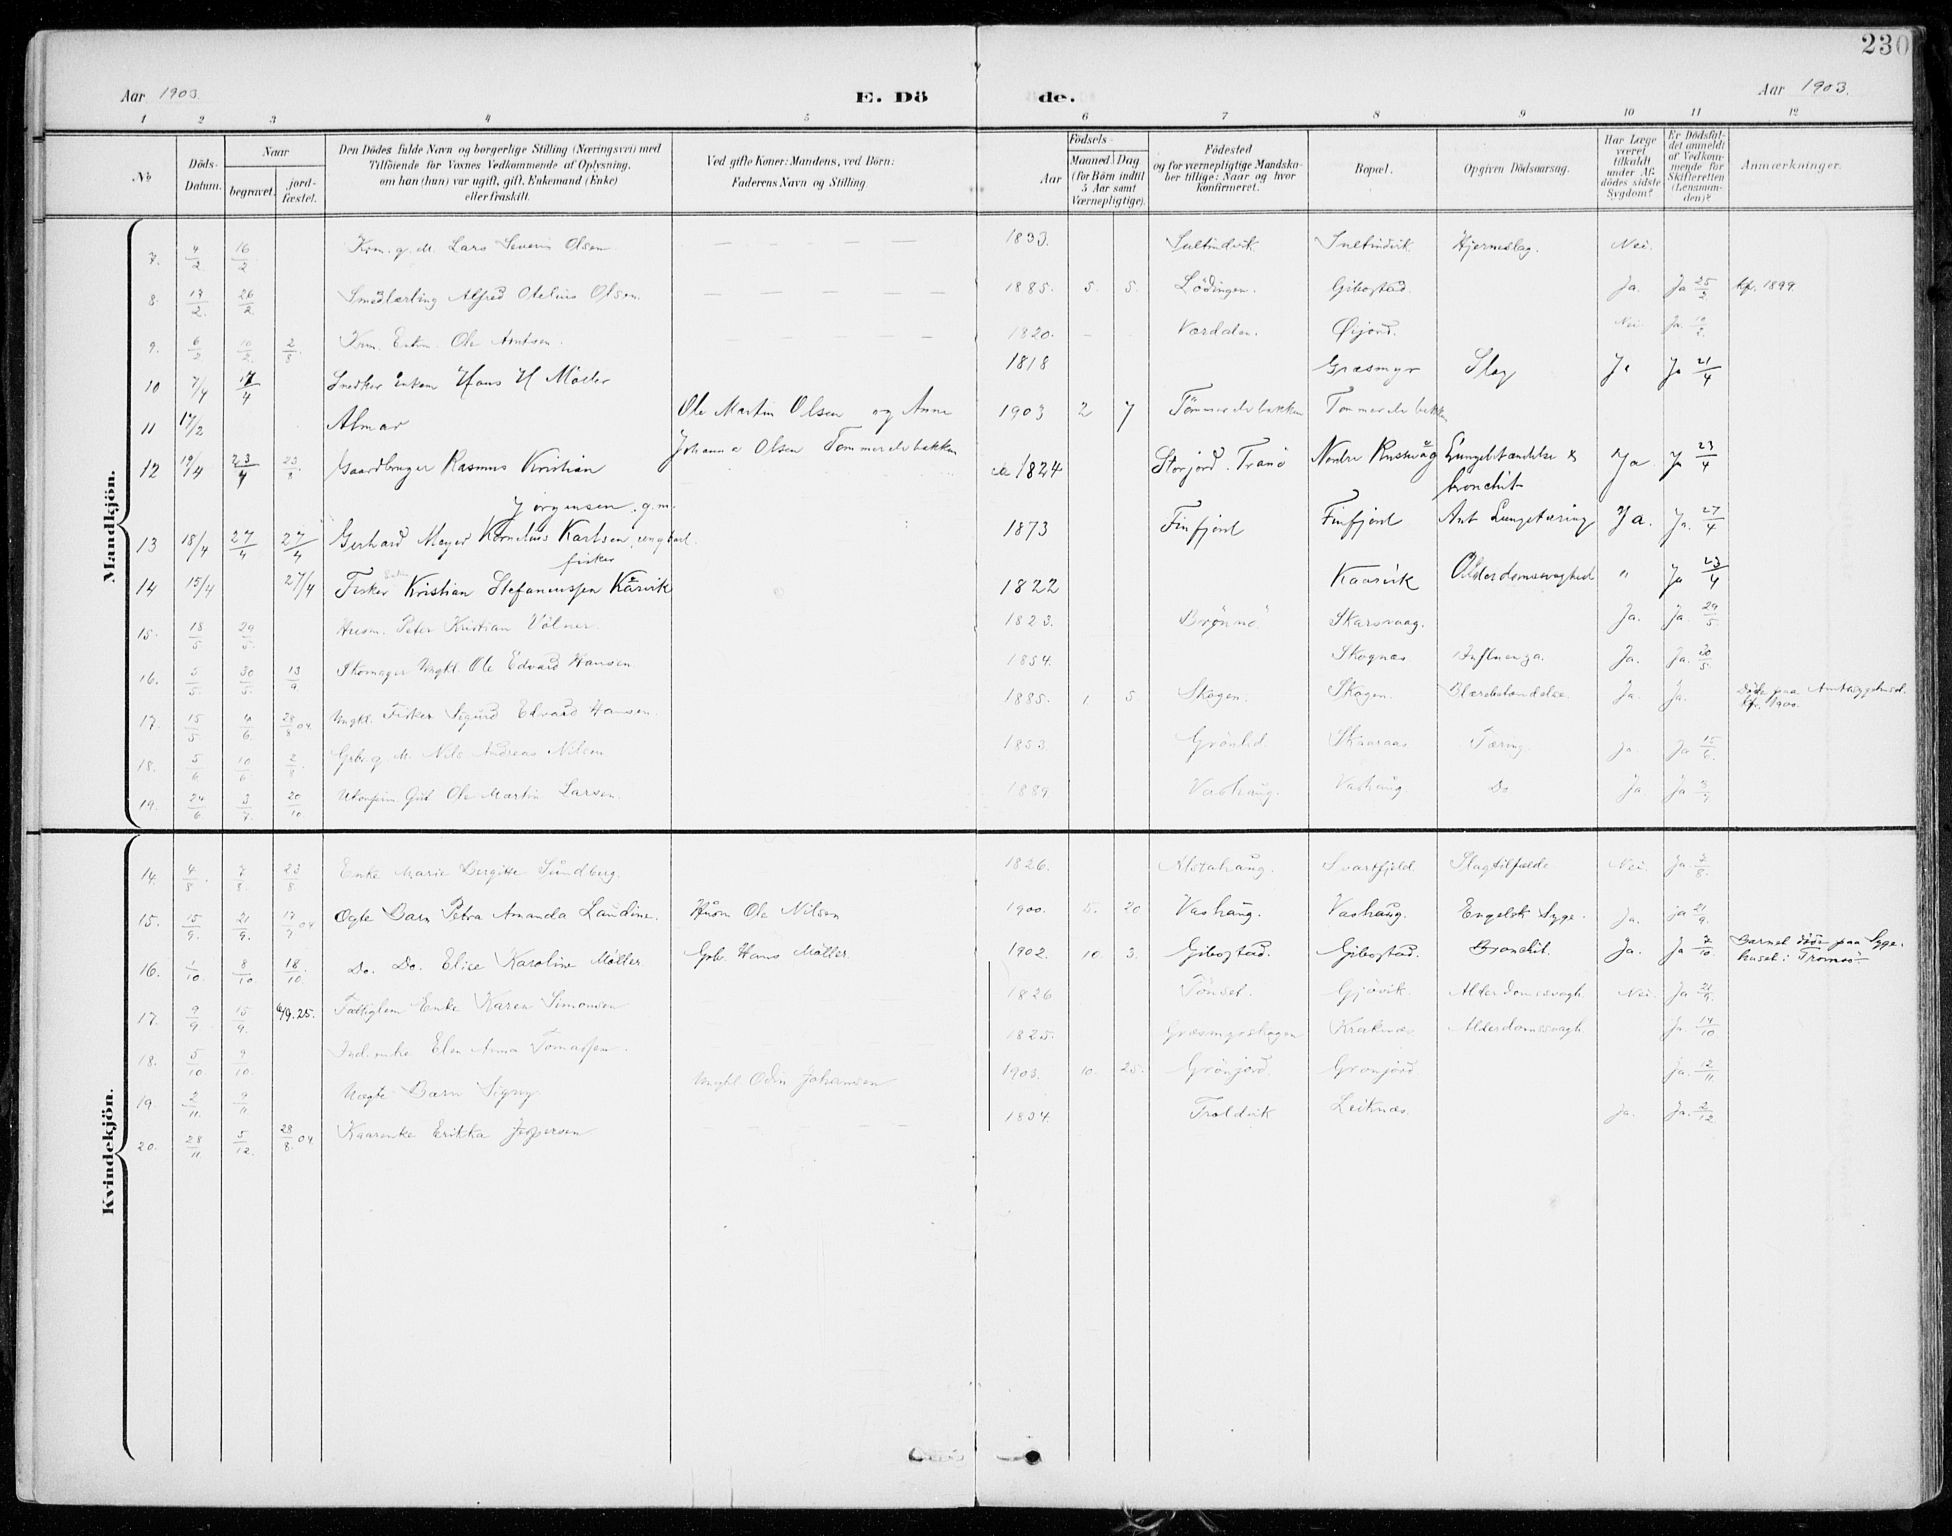 230
Aar 1903.
E. Dö de.
Aar 1903.
1 2 3 4 5 6 7 8 9 10 11 12
No
Döds-Datum.
Naar
begravet.
jord-fæstet.
Den Dödes fulde Navn og borgerlige Stilling (Næringsvei) med
Tilföiende for Voxnes Vedkommende af Oplysning,
om han (hun) var ugift, gift, Enkemand (Enke)
eller fraskilt.
Ved gifte Koner: Mandens, ved Börn:
Faderens Navn og Stilling.
Födsels-
Aar
Maaned Dag
(for Börn indtil
5 Aar samt
Værnepligtige).
Födested
og for værnepligtige Mandska-
ber tillige: Naar og hvor
konfirmeret.
Bopæl.
Opgiven Dödsaarsag.
Har Læge
været
tilkaldt
under Af-
dödes sidste
Sygdom?
Er Dödsfal-
det anmeldt
af Vedkom-
mende for
Skifteretten
(Lensman-
den)?
Anmærkninger.
Mandkjön.
7. 4/2 16/2 Krm. g. M. Lars Severin Olsen — — — — 1833. Sultindvik Sultindvik Hjerneslag. Nei.
8. 17/2. 26/2. Smedlærling Alfred Otelius Olsen. — — — — 1885. 5. 5. Lödingen. Gibostad. Ja. Ja 25/2. Kf. 1899.
9. 6/2 10/2. 2/8. Krm. Enkm. Ole Arntsen. — — — — 1820. — - Værdalen. Øijord. Nei. Ja. 10/2.
10 7/4 17/4 Snedker Enkem Hans H Möller 1818 Græsmyr Slag Ja Ja 21/4
11 17/2 Almar Ole Martin Olsen og Anne 1903 2 7 Tömmerelvbakken Tommerelvbakken
Johanne Olsen Tommerelvbakken
12 19/4 23/4 23/8 Gaardbruger Rasmus Kristian ca 1824 Storjord. Tranö Nordre Rusevåg Lungebetændelse & Ja. Ja 23/4
Jörgensen. g.m. bronchit
13 18/4 27/4 27/4 Gerhard Meyer Kornelius Karlsen, ungkarl. 1873 Finfjord Finfjord Ant Lungetæring Ja. Ja. 27/4
fisker
14 15/4 27/4 Fisker Kristian Stefanussen Kårvik 1822 Kaarvik Alderdomssvaghed " Ja 23/4
15. 18/5 29/5. Husm. Peter Kristian Völner. 1823. Brönnö Skarsvaag. Ja. Ja 29/5.
16. 5/5. 30/5. 13/9 Skomager Ungkl. Ole Edvard Hansen. 1854. Skognæs Influenza. Ja. Ja. 30/5.
17. 15/5. 4/6. 28/8 04. Ungkl. Fisker Sigurd Edvard Hansen. 1885. 1. 5 Skogen. Skogen. Blærebetændelse. Ja. Ja. Döde paa Amtssygehuset.
Kf. 1900.
18. 5/6 10/6. 2/8. Grbr. g. M. Nils Andreas Nilsen 1853. Grönlid Skaaraas Tæring. Ja. Ja 15/6.
19. 24/6. 3/7. 20/10 Ukonfirm. Gut Ole Martin Larsen. 1889 Vashaug. Vashaug Do Ja Ja 3/7
Kvindekjön.
14. 4/8. 7/8. 23/8. Enke Marie Bergitte Sundberg. 1826. Alstahaug. Svartfjeld. Slagtilfælde Nei. Ja. 7/8.
15. 15/9. 21/9. 17/7 04 Ægte Barn Petra Amanda Laudine. Husm Ole Nilsen 1900. 5. 20 Vashaug. Vashaug. Engelsk Syge. Ja. ja 21/9.
16. 1/10 8/10 18/10. Do. Do. Elise Karoline Möller Grbr. Hans Möller. 1902. 10. 3. Gibostad. Gibostad. Bronchit. Ja. Ja 7/10. Barnet döde paa Syge-
huset i Tromsö
17. 9/9. 15/9. 6/9. 25. Fattiglem Enke Karen Simonsen 1826 Tönset. Gjövik. Alderdomssvagh. Nei. Ja 21/9.
18. 5/10 9/10. Ind. enke Elen Anna Tomassen. 1825. Græsmyrskogen Kræknæs Alderdomssvagh. Ja 14/10
19. 2/11. 9/11 Uægte Barn Signy. Ungkl Odin Johansen 1903. 10. 25. Grönjord. Gronjord ja. 12/11.
20. 28/11. 5/12. 28/8. 04 Kaarenke Erikka Jespersen — — — — 1834. Troldvik Leiknæs. ja. Ja. 2/12